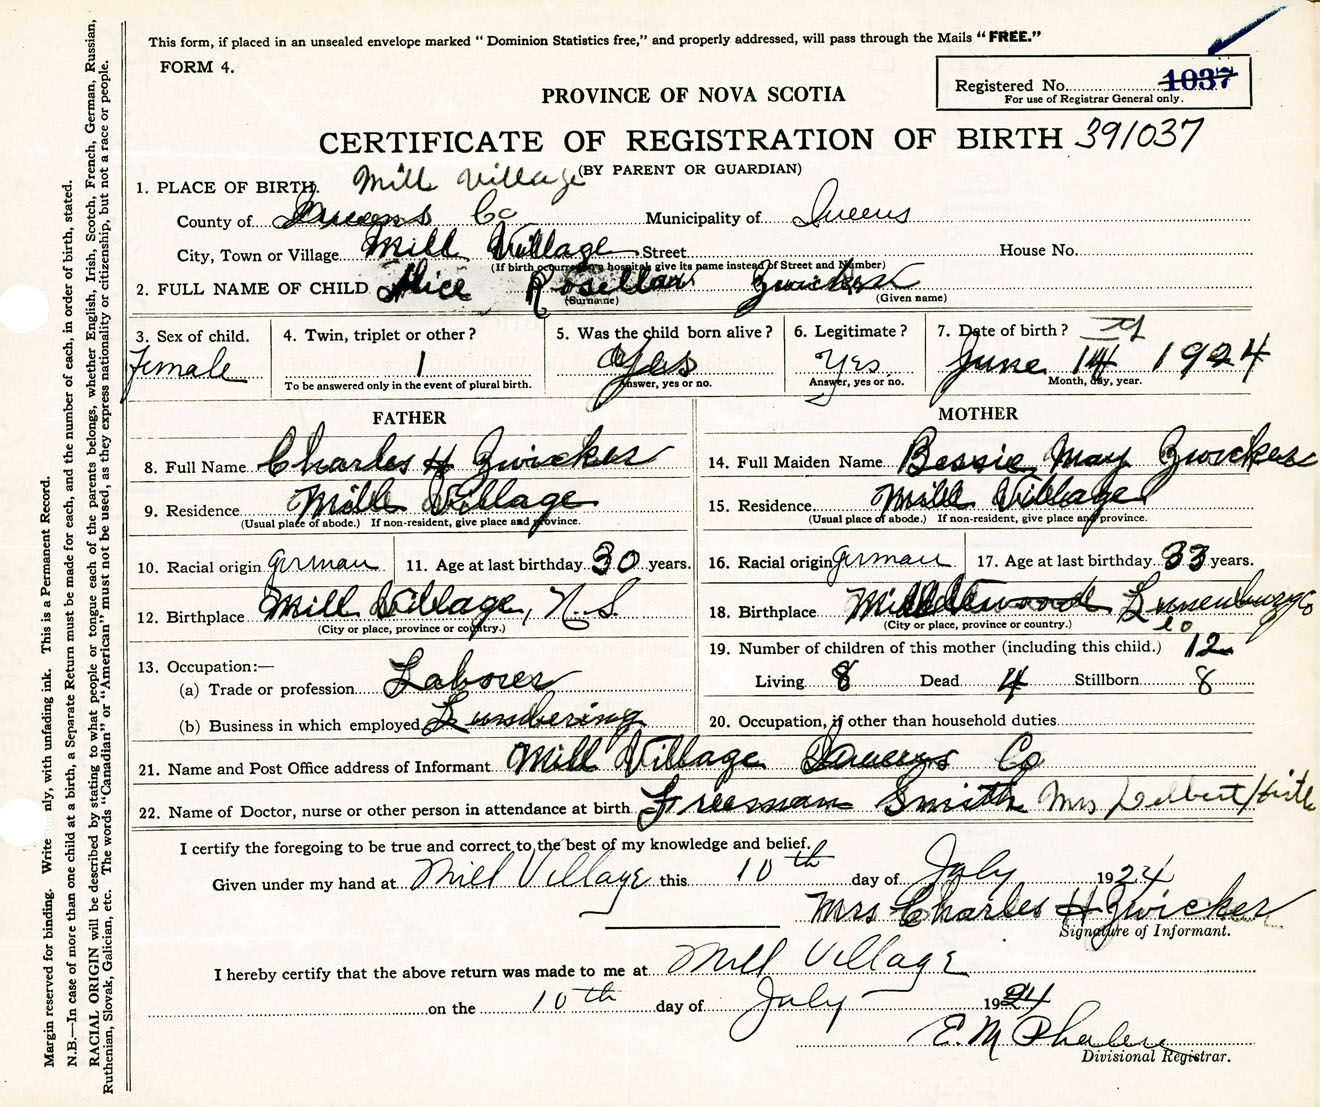 This form, if placed in an unsealed envelope marked “ Dominion Statistics free,” and properly addressed, will pass through the Mails “ FREE.”
FORM 4.
Registered No. 1037
For use of Registrar General only.
PROVINCE OF NOVA SCOTIA
CERTIFICATE OF REGISTRATION OF BIRTH 391037
(BY PARENT OR GUARDIAN)
1. PLACE OF BIRTH. Mill Village
County of Queens Co Municipality of Queens
City, Town or Village Mill Village Street House No.
(If birth occurred in a hospital give its name instead of Street and Number)
2. FULL NAME OF CHILD Alice Rosellan Zwicker
(Surname) (Given name)
3. Sex of child. Female
4. Twin, triplet or other? 1
To be answered only in the event of plural birth.
5. Was the child born alive? Yes
Answer, yes or no.
6. Legitimate? Yes
Answer, yes or no.
7. Date of birth? June 14 1924
Month, day, year.
FATHER
8. Full Name Charles H Zwicker
9. Residence Mill Village
(Usual place of abode.) If non-resident, give place and province.
10. Racial origin german 11. Age at last birthday 30 years.
12. Birthplace Mill Village, N.S.
(City or place, province or country.)
13. Occupation:—
(a) Trade or profession Laborer
(b) Business in which employed Lumbering
MOTHER
14. Full Maiden Name Bessie May Zwicker
15. Residence Mill Village
(Usual place of abode.) If non-resident, give place and province.
16. Racial origin german 17. Age at last birthday 33 years.
18. Birthplace Middlewood Lunenburg Co
(City or place, province or country.)
19. Number of children of this mother (including this child.) 12
Living 8 Dead 4 Stillborn 8
20. Occupation, if other than household duties
21. Name and Post Office address of Informant Mill Village Queens Co
22. Name of Doctor, nurse or other person in attendance at birth Freeman Smith Mrs Delbert
I certify the foregoing to be true and correct to the best of my knowledge and belief.
Given under my hand at Mill Village this 10th day of July 1924
Mrs Charles H Zwicker
Signature of Informant.
I hereby certify that the above return was made to me at Mill Village
on the 10th day of July 1924
E. M Phalen
Divisional Registrar.
Margin reserved for binding. Write nly, with unfading ink. This is a Permanent Record.
N.B.—In case of more than one child at a birth, a Separate Return must be made for each, and the number of each, in order of birth, stated.
RACIAL ORIGIN will be described by stating to what people or tongue each of the parents belongs, whether English, Irish, Scotch, French, German, Russian,
Ruthenian, Slovak, Galician, etc. The words “Canadian” or “American” must not be used, as they express nationality or citizenship, but not a race or people.